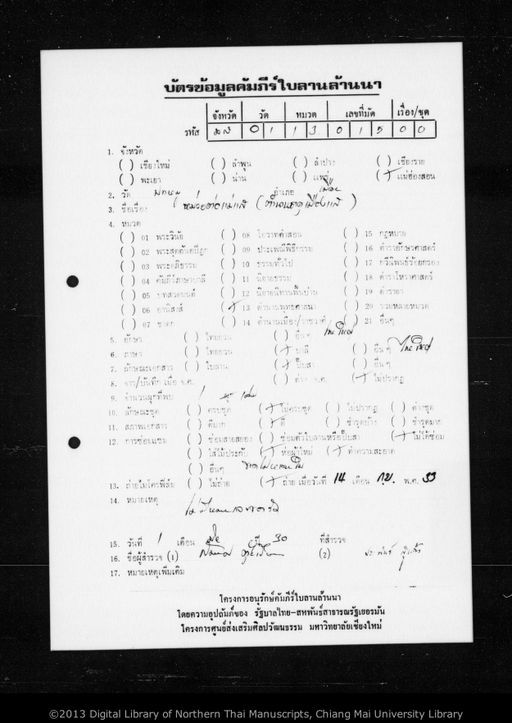 บัตรข้อมูลคัมภีร์ใบลานล้านนา
จังหวัด วัด หมวด เลขที่มัด เรื่อง/ชุด
รหัส มส 0 1 1 3 0 1 5 0 0
1. จังหวัด
( ) เชียงใหม่ ( ) ลำพูน ( ) ลำปาง ( ) เชียงราย
( ) พะเยา ( ) น่าน ( ) แพร่ ( ) แม่ฮ่องสอน
2. วัด อำเภอ เมือง
3. ชื่อเรื่อง
4. หมวด
( ) 01 พระวินัย ( ) 08 โอวาทคำสอน ( ) 15 กฎหมาย
( ) 02 พระสุตตันตปิฎก ( ) 09 ประเพณีพิธีกรรม ( ) 16 ตำราอักษรศาสตร์
( ) 03 พระอภิธรรม ( ) 10 ธรรมทั่วไป ( ) 17 กวีนิพนธ์ร้อยกรอง
( ) 04 คัมภีร์ภาษาบาลี ( ) 11 นิยายธรรม ( ) 18 ตำราโหราศาสตร์
( ) 05 บทสวดมนต์ ( ) 12 นิยายนิทานพื้นบ้าน ( ) 19 ตำรายา
( ) 06 อานิสงส์ ( ) 13 ตำนานพุทธศาสนา ( ) 20 รวมหลายหมวด
( ) 07 ชาดก ( ) 14 ตำนานเมือง/ราชวงศ์ ( ) 21 อื่นๆ
5. อักษร ( ) ไทยยวน ( ) อื่นๆ ไทใหญ่
6. ภาษา ( ) ไทยยวน ( ) บาลี ( ) อื่นๆ ไทใหญ่
7. ลักษณะเอกสาร ( ) ใบลาน ( ) พับสา ( ) อื่นๆ
8. จาร/บันทึก เมื่อ จ.ศ. ( ) ไม่ปรากฏ
9. จำนวนผูกที่พบ 1
10. ลักษณะชุด ( ) ครบชุด ( ) ไม่ครบชุด ( ) ไม่ปรากฏ ( ) ต่างชุด
11. สภาพเอกสาร ( ) ดีมาก ( ) ดี ( ) ชำรุดบ้าง ( ) ชำรุดมาก
12. การซ่อมแซม ( ) ซ่อมสายสยอง ( ) ซ่อมตัวใบลานหรือปั๊บสา ( ) ไม่ได้ซ่อม
( ) ใส่ไม้ประกับ ( ) ห่อผ้าใหม่ ( ) ทำความสะอาด
( ) อื่นๆ
13. ถ่ายไมโครฟิล์ม ( ) ไม่ถ่าย ( ) ถ่าย เมื่อวันที่ 14 เดือน กย. พ.ศ. 33
14. หมายเหตุ
15. วันที่ 1 เดือน ปี 30 ที่สำรวจ
16. ชื่อผู้สำรวจ (1) (2)
17. หมายเหตุเพิ่มเติม
โครงการอนุรักษ์คัมภีร์ใบลานล้านนา
โดยความอุปถัมภ์ของ รัฐบาลไทย-สหพันธ์สาธารณรัฐเยอรมัน
โครงการศูนย์ส่งเสริมศิลปวัฒนธรรม มหาวิทยาลัยเชียงใหม่
©2013 Digital Library of Northern Thai Manuscripts, Chiang Mai University Library